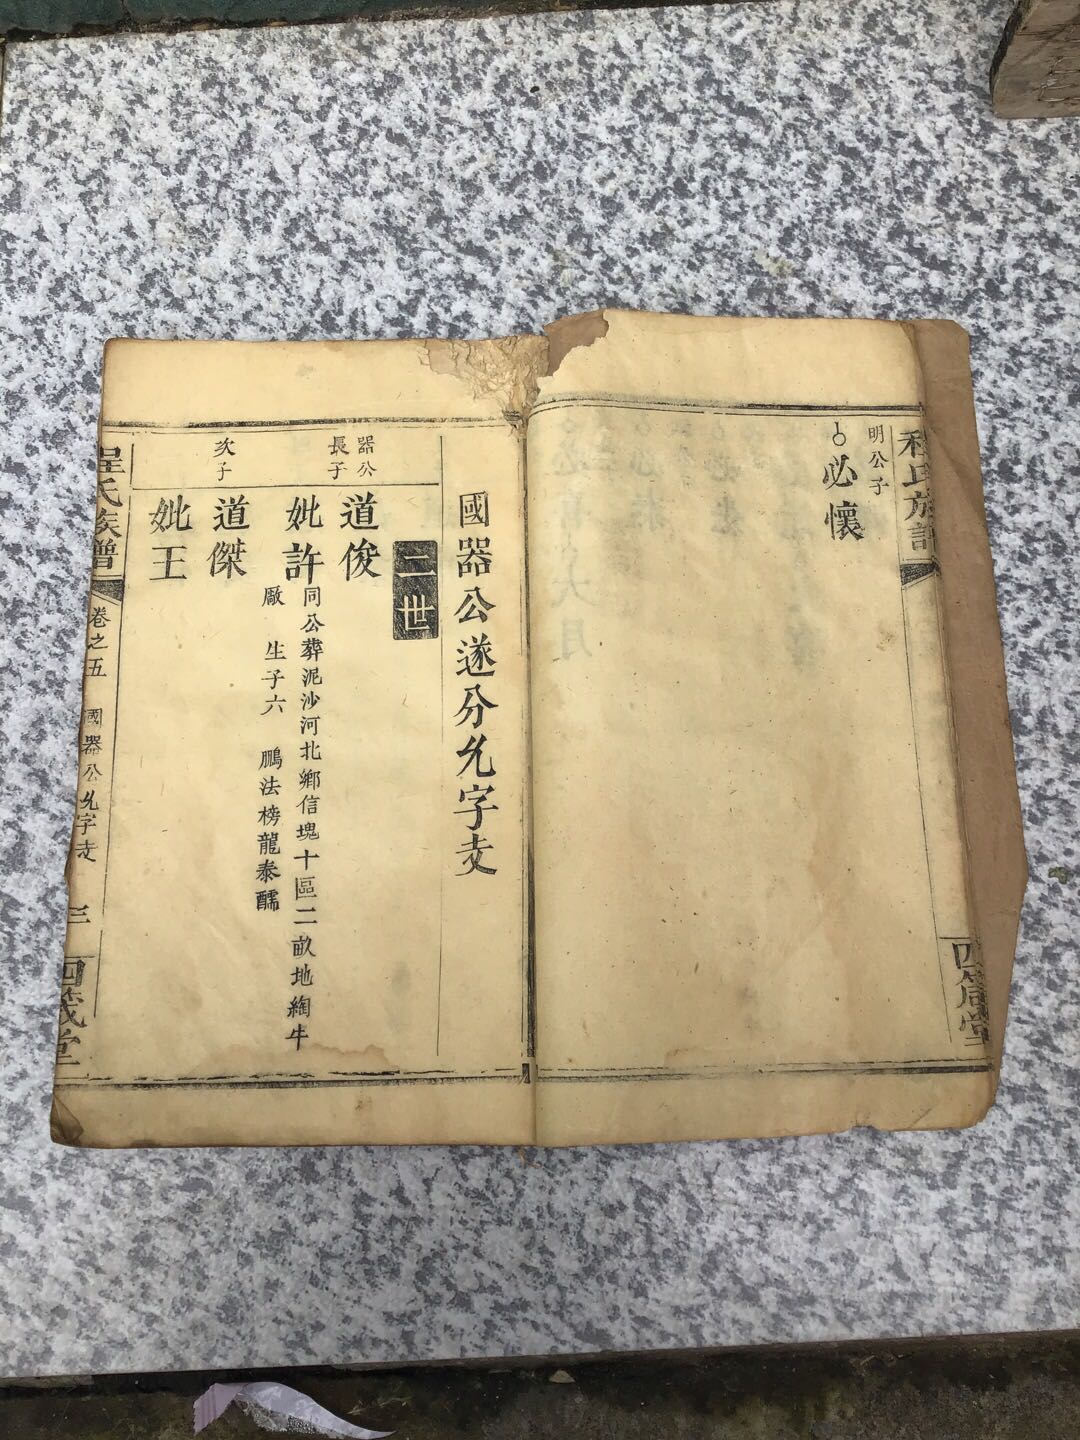 程氏族譜
四箴堂
明公子
必懷
國器公遂分允字支
二世
器公
長子
道俊
妣許
同公葬泥沙河北鄉信塊十區二畝地綯牛
廠 生子六 鵬法榜龍泰醹
次子
道傑
妣王
程氏族譜
卷之五 國器公允字支
三
四箴堂